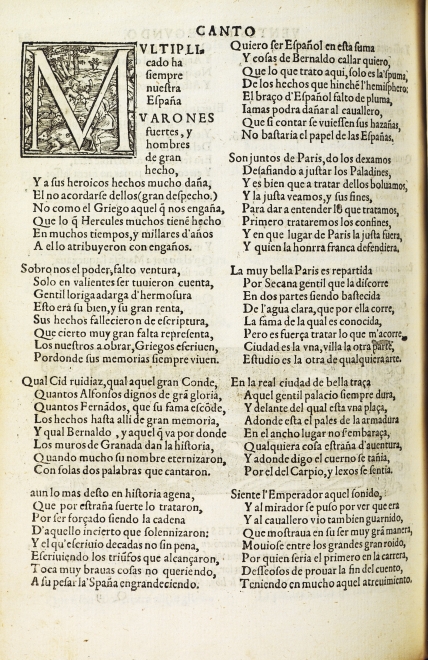 CANTO
MVLTIPLI
cado ha
siempre
nuestra
España
VARONES
fuertes, y
hombres
de gran
hecho,
Y a sus heroicos hechos mucho daña,
El no acordarse dellos (gran despecho.)
No como el Griego aquel q̃ nos engaña,
Que lo q̃ Hercules muchos tienē hecho
En muchos tiempos, y millares d'años
A el lo atribuyeron con engaños.
Sobronos el poder, falto ventura,
Solo en valientes ser tuuieron cuenta,
Gentil loriga darga d'hermosura
Esto era su bien, y su gran renta,
Sus hechos fallecieron de escriptura,
Que cierto muy gran falta representa,
Los nuestros a obrar, Griegos escriuen,
Por donde sus memorias siempre viuen.
Qual Cid ruidiaz, qual aquel gran Conde,
Quantos Alfonsos dignos de grã gloria,
Quantos Fernãdos, que su fama escõde,
Los hechos hasta alli de gran memoria,
Y qual Bernaldo, y aquel q̃ va por donde
Los muros de Granada dan la historia,
Quando mucho su nombre eternizaron,
Con solas dos palabras que cantaron.
aun lo mas desto en historia agena,
Que por estraña suerte lo trataron,
Por ser forçado siendo la cadena
D'aquello incierto que solennizaron:
Y el qu'escriuio decadas no sin pena,
Escriuiendo los triũfos que alcançaron,
Toca muy brauas cosas no queriendo,
A su pesar la'Spaña engrandeciendo.
Quiero ser Español en esta suma
Y cosas de Bernaldo callar quiero,
Que lo que trato aqui, solo es la'spuma,
De los hechos que hinchē l'hemisphero:
El braço d'Español falto de pluma,
Iamas podra dañar al cauallero,
Que si contar se vuiessen sus hazañas,
No bastaria el papel de las Españas.
Son juntos de Paris, do los dexamos
Desafiando a justar los Paladines,
Y es bien que a tratar dellos boluamos,
Y la justa veamos, y sus fines,
Para dar a entender lo que tratamos,
Primero trataremos los confines,
Y en que lugar de Paris la justa fuera,
Y quien la honrra franca defendiera.
La muy bella Paris es repartida
Por Secana gentil que la discorre
En dos partes siendo bastecida
De l'agua clara, que por ella corre,
La fama de la qual es conocida,
Pero es fuerça tratar lo que m'acorre,
Ciudad es la vna, villa la otra parte,
Estudio es la otra de qualquiera arte.
En la real ciudad de bella traça
Aquel gentil palacio siempre dura,
Y delante del qual esta vna plaça,
Adonde esta el pales de la armadura
En el ancho lugar no s'embaraça,
Qualquiera cosa estraña d'auentura,
Y adonde digo el cuerno se tañia,
Por el del Carpio, y lexos se sentia.
Siente l'Emperador aquel sonido,
Y al mirador se puso por ver que era
Y al cauallero vio tambien guarnido,
Que mostraua en su ser muy grã manera,
Mouiose entre los grandes gran roido,
Por quien seria el primero en la carrera,
Desseosos de prouar la fin del cuento,
Teniendo en mucho aquel atreuimiento.